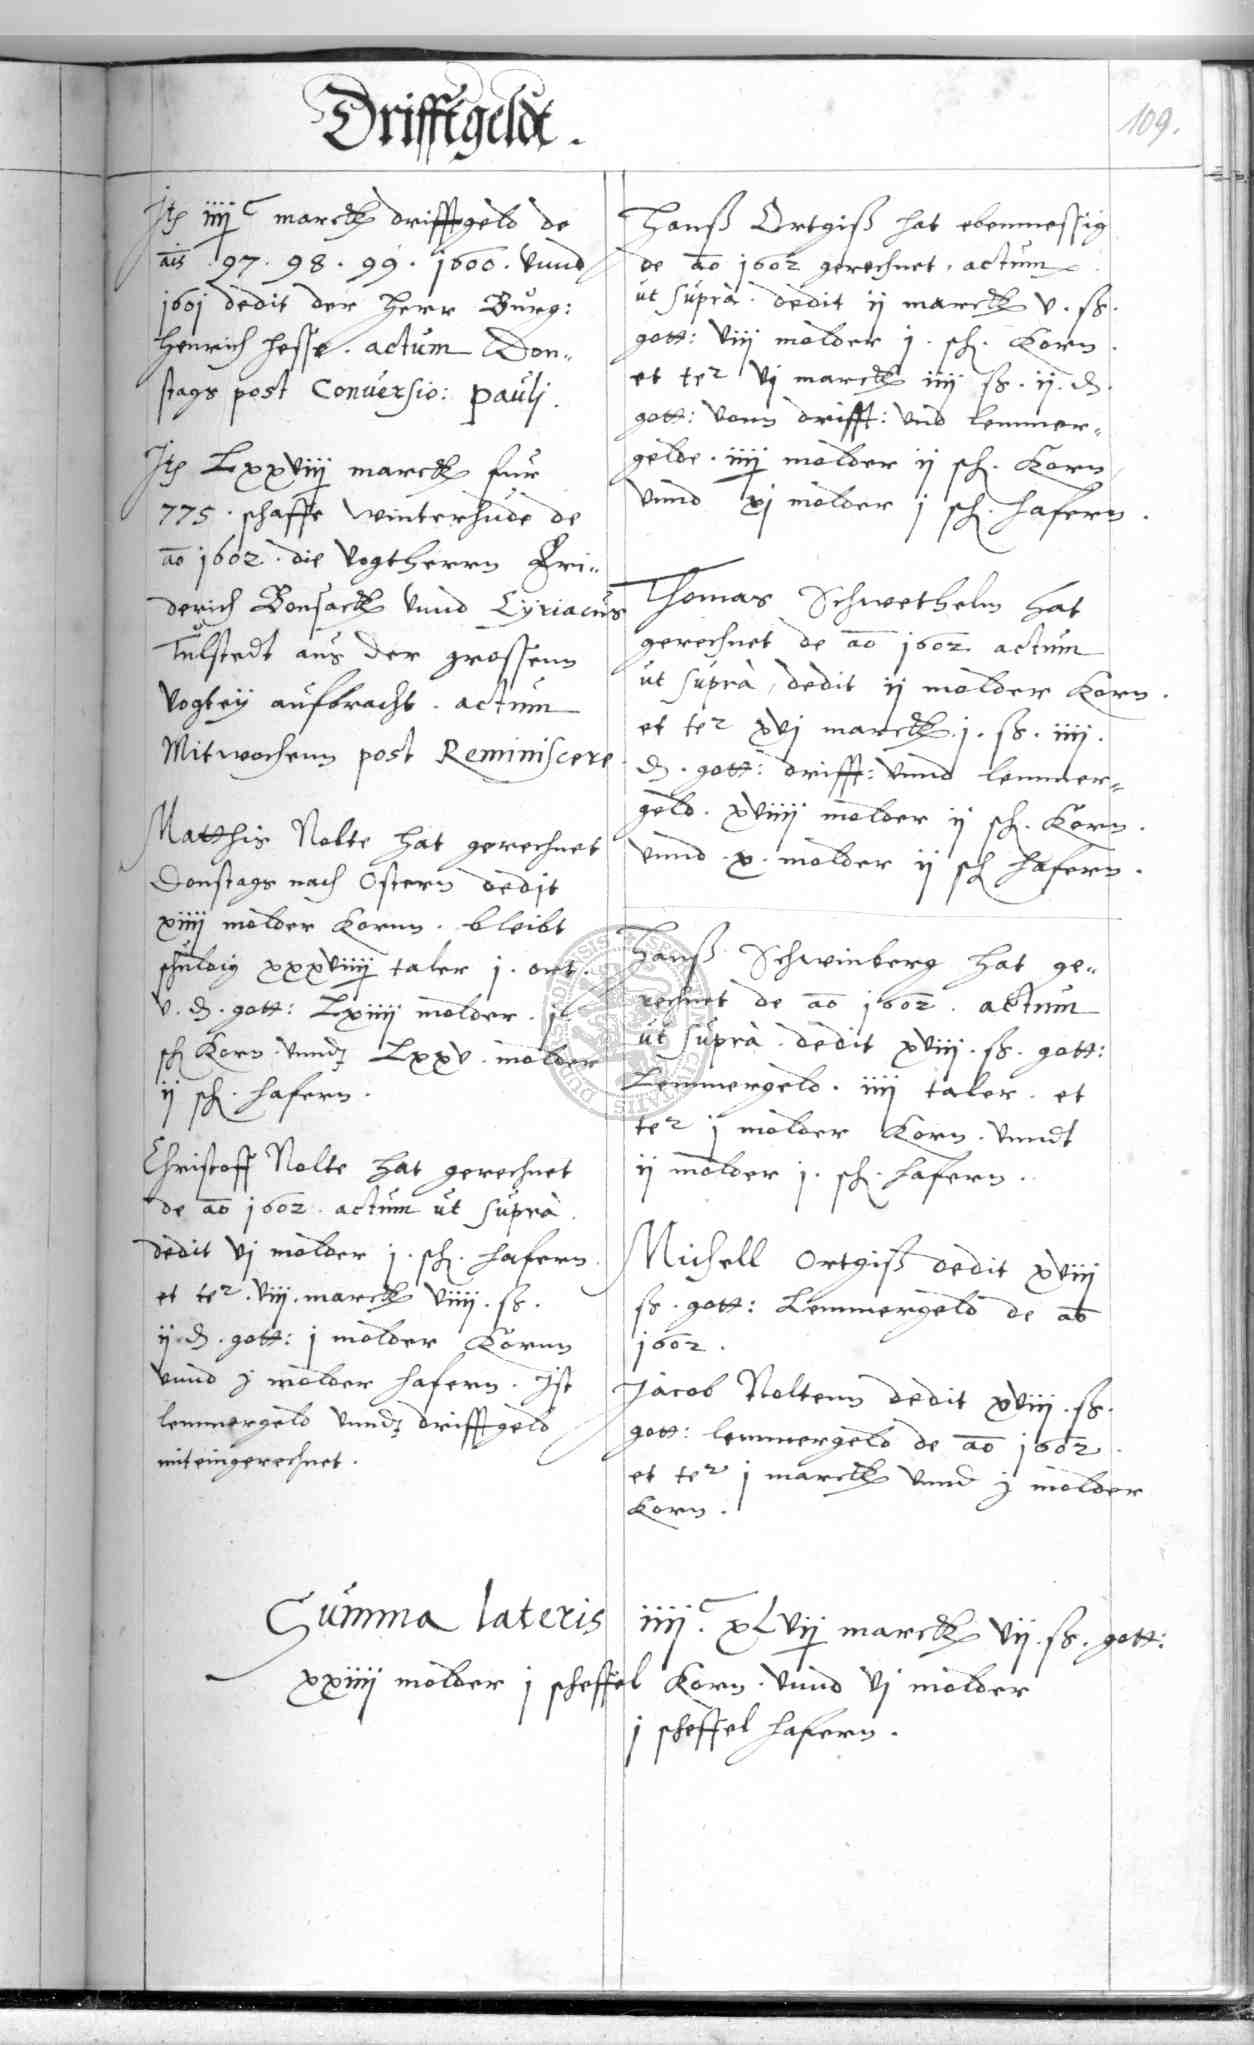 Drifftgeldt.
109.
Jt iiijC marck driffgeld de
ais 97. 98. 99. 1600. vnnd
1601 dedit der Herr Burg:
Henrich Hesse. actum Don-
stags post Conversio: Paulj.
Jt Lxxviiij marck fur
775. schaffe winterhude de
ao 1602. die Vogtherrn Fri-
derich Bonsack vnnd Cÿriacus
Tulstedt aus der grossenn
Vogteÿ aufbracht. actum
Mitwochenn post Reminiscere.
Matthis Nolte hat gerechnet
Donstags nach Ostern dedit
xiiij molder Kornn. bleibt
schuldig xxxviiij taler j. ort.
v. d. gott: Lxiiij molder. j
sch Korn. vnndt Lxxv. molder
ij sch. hafern.
Christoff Nolte hat gerechnet
de ao 1602. actum ut supra.
dedit vj molder j. sch. hafern.
et ter. viij. marck viiij. ss.
ij. d. gott: j molder Kornn
vnnd j molder hafern. Jst
lemmergeld vnndt driffgeld
mit eingerechnet.
Hanß Ortgiß hat ebenmessig
de ao 1602 gerechnet. actum
ut supra. dedit ij marck v. ss.
gott: viij molder j. sch. Korn.
et ter vj marck iiij ss. ij. d.
gott: vonn drifft: vnd lemmer-
gelde. iiij molder ij sch. Korn
vnnd xj molder j sch. hafern.
Thomas Schwethelm hat
gerechnet de ao 1602 actum
ut supra, dedit ij molder Korn.
et ter xvj marck. j. ss. iiij.
d. gott: drifft: vnnd lemmer-
geld. xviiij molder ij sch. Korn.
vnnd. x. molder ij sch hafern.
Hanß Schwinberg hat ge-
rechnet de ao 1602. actum
ut supra. dedit xviij. ss. gott:
Lemmergeld. iiij taler. et
ter j molder Korn. vnndt
ij molder j. sch. hafern.
Michell Ortgiß dedit xviij
ss. gott: Lemmergeld de ao
1602.
Jacob Noltenn dedit xviij. ss.
gott: lemmergeld de ao 1602.
et ter j marck vnnd j molder
Korn.
Summa lateris iiijC. xLvij marck vij. ss. gott:
xxiiij molder j scheffel Korn. vnnd vj molder
j scheffel hafern.